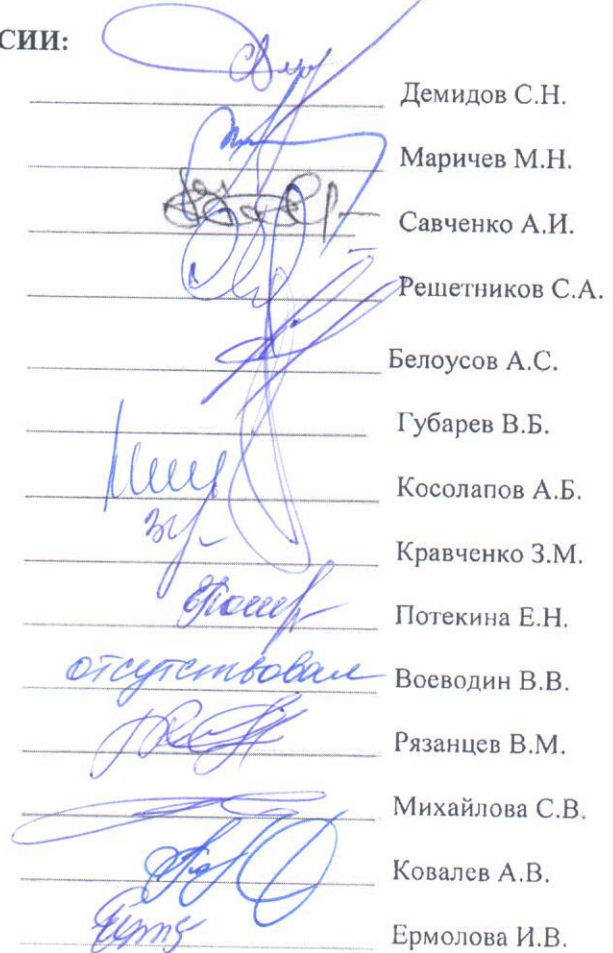 СИИ:
Демидов С.Н.
Маричев М.Н.
Савченко А.И.
Решетников С.А.
Белоусов А.С.
Губарев В.Б.
Косолапов А.Б.
Кравченко З.М.
Потекина Е.Н.
отсутствовал Воеводин В.В.
Рязанцев В.М.
Михайлова С.В.
Ковалев А.В.
Ермолова И.В.